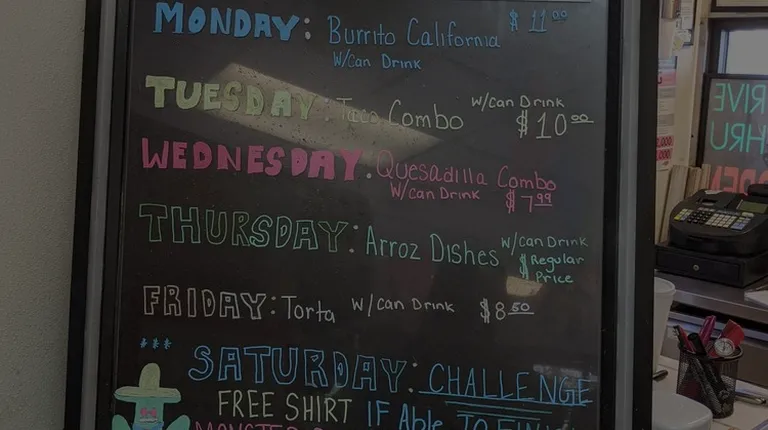 MONDAY: Burrito California $11⁰⁰
w/can Drink
TUESDAY: Taco Combo w/can Drink
$10⁰⁰
WEDNESDAY: Quesadilla Combo
w/can Drink $7⁹⁹
THURSDAY: Arroz Dishes w/can Drink
$ Regular
Price
FRIDAY: Torta w/can Drink $8⁵⁰
*** SATURDAY: CHALLENGE
FREE SHIRT IF Able TO
DRIVE
THRU